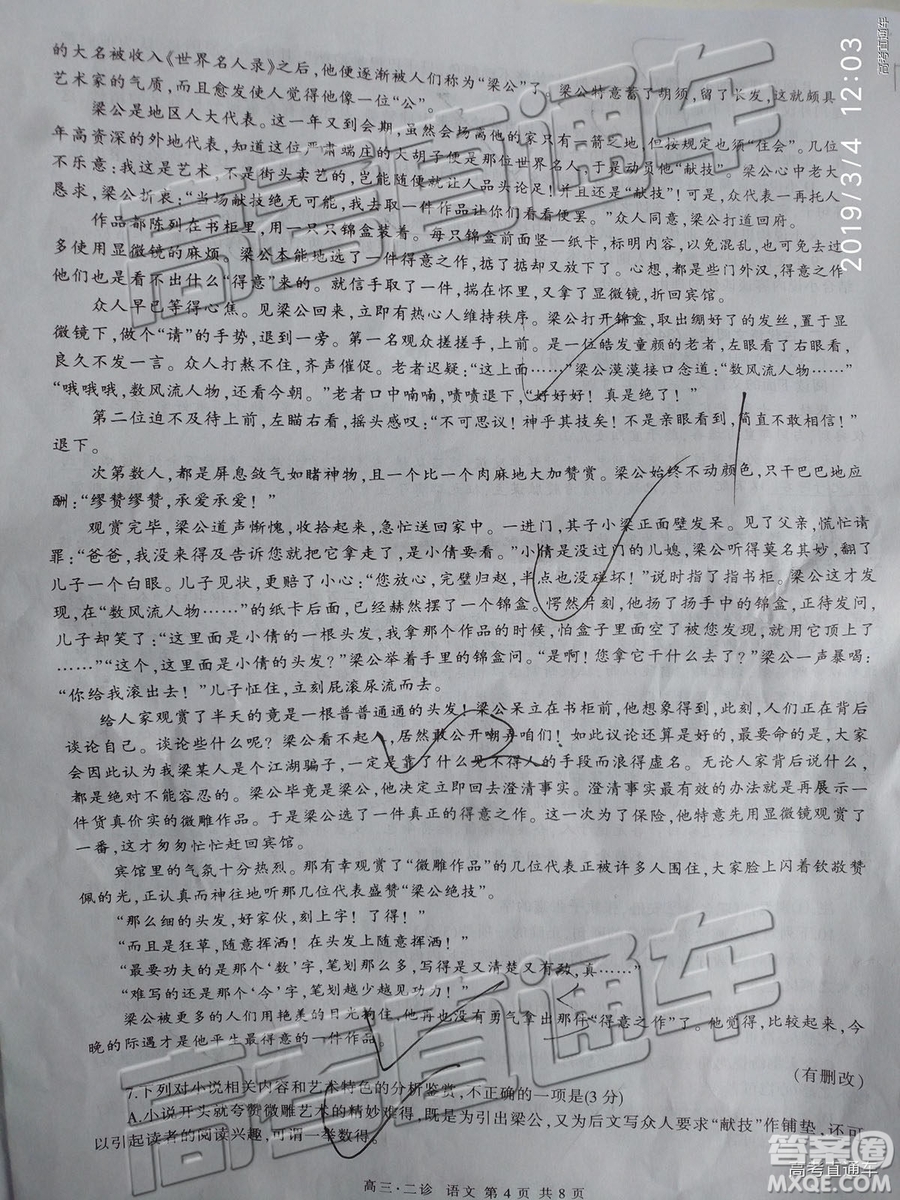 的大名被收入《世界名人录》之后，他便逐渐被人们称为“梁公”了。梁公特意蓄了胡须，留了长发，这就颇具
艺术家的气质，而且愈发使人觉得他像一位“公”。
梁公是地区人大代表。这一年又到会期，虽然会场离他的家只有一箭之地，但按规定也须“住会”。几位
年高资深的外地代表，知道这位严肃端庄的大胡子便是那位世界名人，于是动员他“献技”。梁公心中老大
不乐意：我这是艺术，不是街头卖艺的，岂能随便就让人品头论足！并且还是“献技”！可是，众代表一再托人
恳求，梁公折衷：“当场献技绝无可能，我去取一件作品让你们看看便罢。”众人同意，梁公打道回府。
作品都陈列在书柜里，用一只只锦盒装着。每只锦盒前面竖一纸卡，标明内容，以免混乱，也可免去过
多使用显微镜的麻烦。梁公本能地选了一件得意之作，掂了掂却又放下了。心想，都是些门外汉，得意之作
他们也是看不出什么“得意”来的。就信手取了一件，揣在怀里，又拿了显微镜，折回宾馆。
众人早已等得心焦。见梁公回来，立即有热心人维持秩序。梁公打开锦盒，取出绷好了的发丝，置于显
微镜下，做个“请”的手势，退到一旁。第一名观众搓搓手，上前。是一位皓发童颜的老者，左眼看了右眼看，
良久不发一言。众人打熬不住，齐声催促。老者迟疑：“这上面……”梁公漠漠接口念道：“数风流人物……”
“哦哦哦，数风流人物，还看今朝。”老者口中喃喃，啧啧退下，“好好好！真是绝了！”
第二位迫不及待上前，左瞄右看，摇头感叹：“不可思议！神乎其技矣！不是亲眼看到，简直不敢相信！”
退下。
次第数人，都是屏息敛气如睹神物，且一个比一个肉麻地大加赞赏。梁公始终不动颜色，只干巴巴地应
酬：“缪赞缪赞，承爱承爱！”
观赏完毕，梁公道声惭愧，收拾起来，急忙送回家中。一进门，其子小梁正面壁发呆。见了父亲，慌忙请
罪：“爸爸，我没来得及告诉您就把它拿走了，是小倩要看。”小倩是没过门的儿媳，梁公听得莫名其妙，翻了
儿子一个白眼。儿子见状，更赔了小心：“您放心，完璧归赵，半点也没碰坏！”说时指了指书柜。梁公这才发
现，在“数风流人物……”的纸卡后面，已经赫然摆了一个锦盒。愕然片刻，他扬了扬手中的锦盒，正待发问，
儿子却笑了：“这里面是小倩的一根头发，我拿那个作品的时候，怕盒子里面空了被您发现，就用它顶上了
……”“这个，这里面是小倩的头发？”梁公举着手里的锦盒问。“是啊！您拿它干什么去了？”梁公一声暴喝：
“你给我滚出去！”儿子怔住，立刻屁滚尿流而去。
给人家观赏了半天的竟是一根普普通通的头发！梁公呆立在书柜前，他想象得到，此刻，人们正在背后
谈论自己。谈论些什么呢？梁公看不起人，居然敢公开嘲弄咱们！如此议论还算是好的，最要命的是，大家
会因此认为我梁某人是个江湖骗子，一定是靠了什么见不得人的手段而浪得虚名。无论人家背后说什么，
都是绝对不能容忍的。梁公毕竟是梁公，他决定立即回去澄清事实。澄清事实最有效的办法就是再展示一
件货真价实的微雕作品。于是梁公选了一件真正的得意之作。这一次为了保险，他特意先用显微镜观赏了
一番，这才匆匆忙忙赶回宾馆。
宾馆里的气氛十分热烈。那有幸观赏了“微雕作品”的几位代表正被许多人围住，大家脸上闪着钦敬赞
佩的光，正认真而神往地听那几位代表盛赞“梁公绝技”。
“那么细的头发，好家伙，刻上字！了得！”
“而且是狂草，随意挥洒！在头发上随意挥洒！”
“最要功夫的是那个‘数’字，笔划那么多，写得是又清楚又有致，真……”
“难写的还是那个‘今’字，笔划越少越见功力！”
梁公被更多的人们用艳羡的目光拘住，他再也没有勇气拿出那件“得意之作”了。他觉得，比较起来，今
晚的际遇才是他平生最得意的一件作品。
（有删改）
7.下列对小说相关内容和艺术特色的分析鉴赏，不正确的一项是(3分)
A.小说开头就夸赞微雕艺术的精妙难得，既是为引出梁公，又为后文写众人要求“献技”作铺垫，还可
以引起读者的阅读兴趣，可谓一举数得。
高三·二诊 语文 第4页 共8页
2019/3/4 12:03
高考直通车
高考直通车
高考直通车
高考直通车
答案圈
MXQE.COM